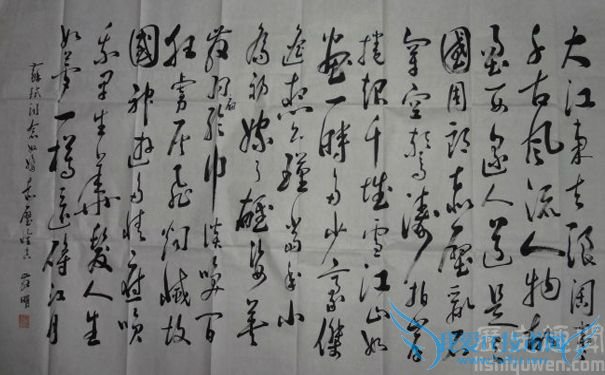 大江東去浪淘盡
千古風流人物故
壘西邊人道是三
國周郎赤壁亂石
穿空驚濤拍岸
捲起千堆雪江山如
畫一時多少豪傑
遙想公瑾當年小
喬初嫁了雄姿英
發羽扇綸巾談笑間
狂虜灰飛煙滅故
國神遊多情應笑
我早生華髮人生
如夢一樽還酹江月
蘇軾詞念奴嬌赤壁懷古
lishiquwen.com